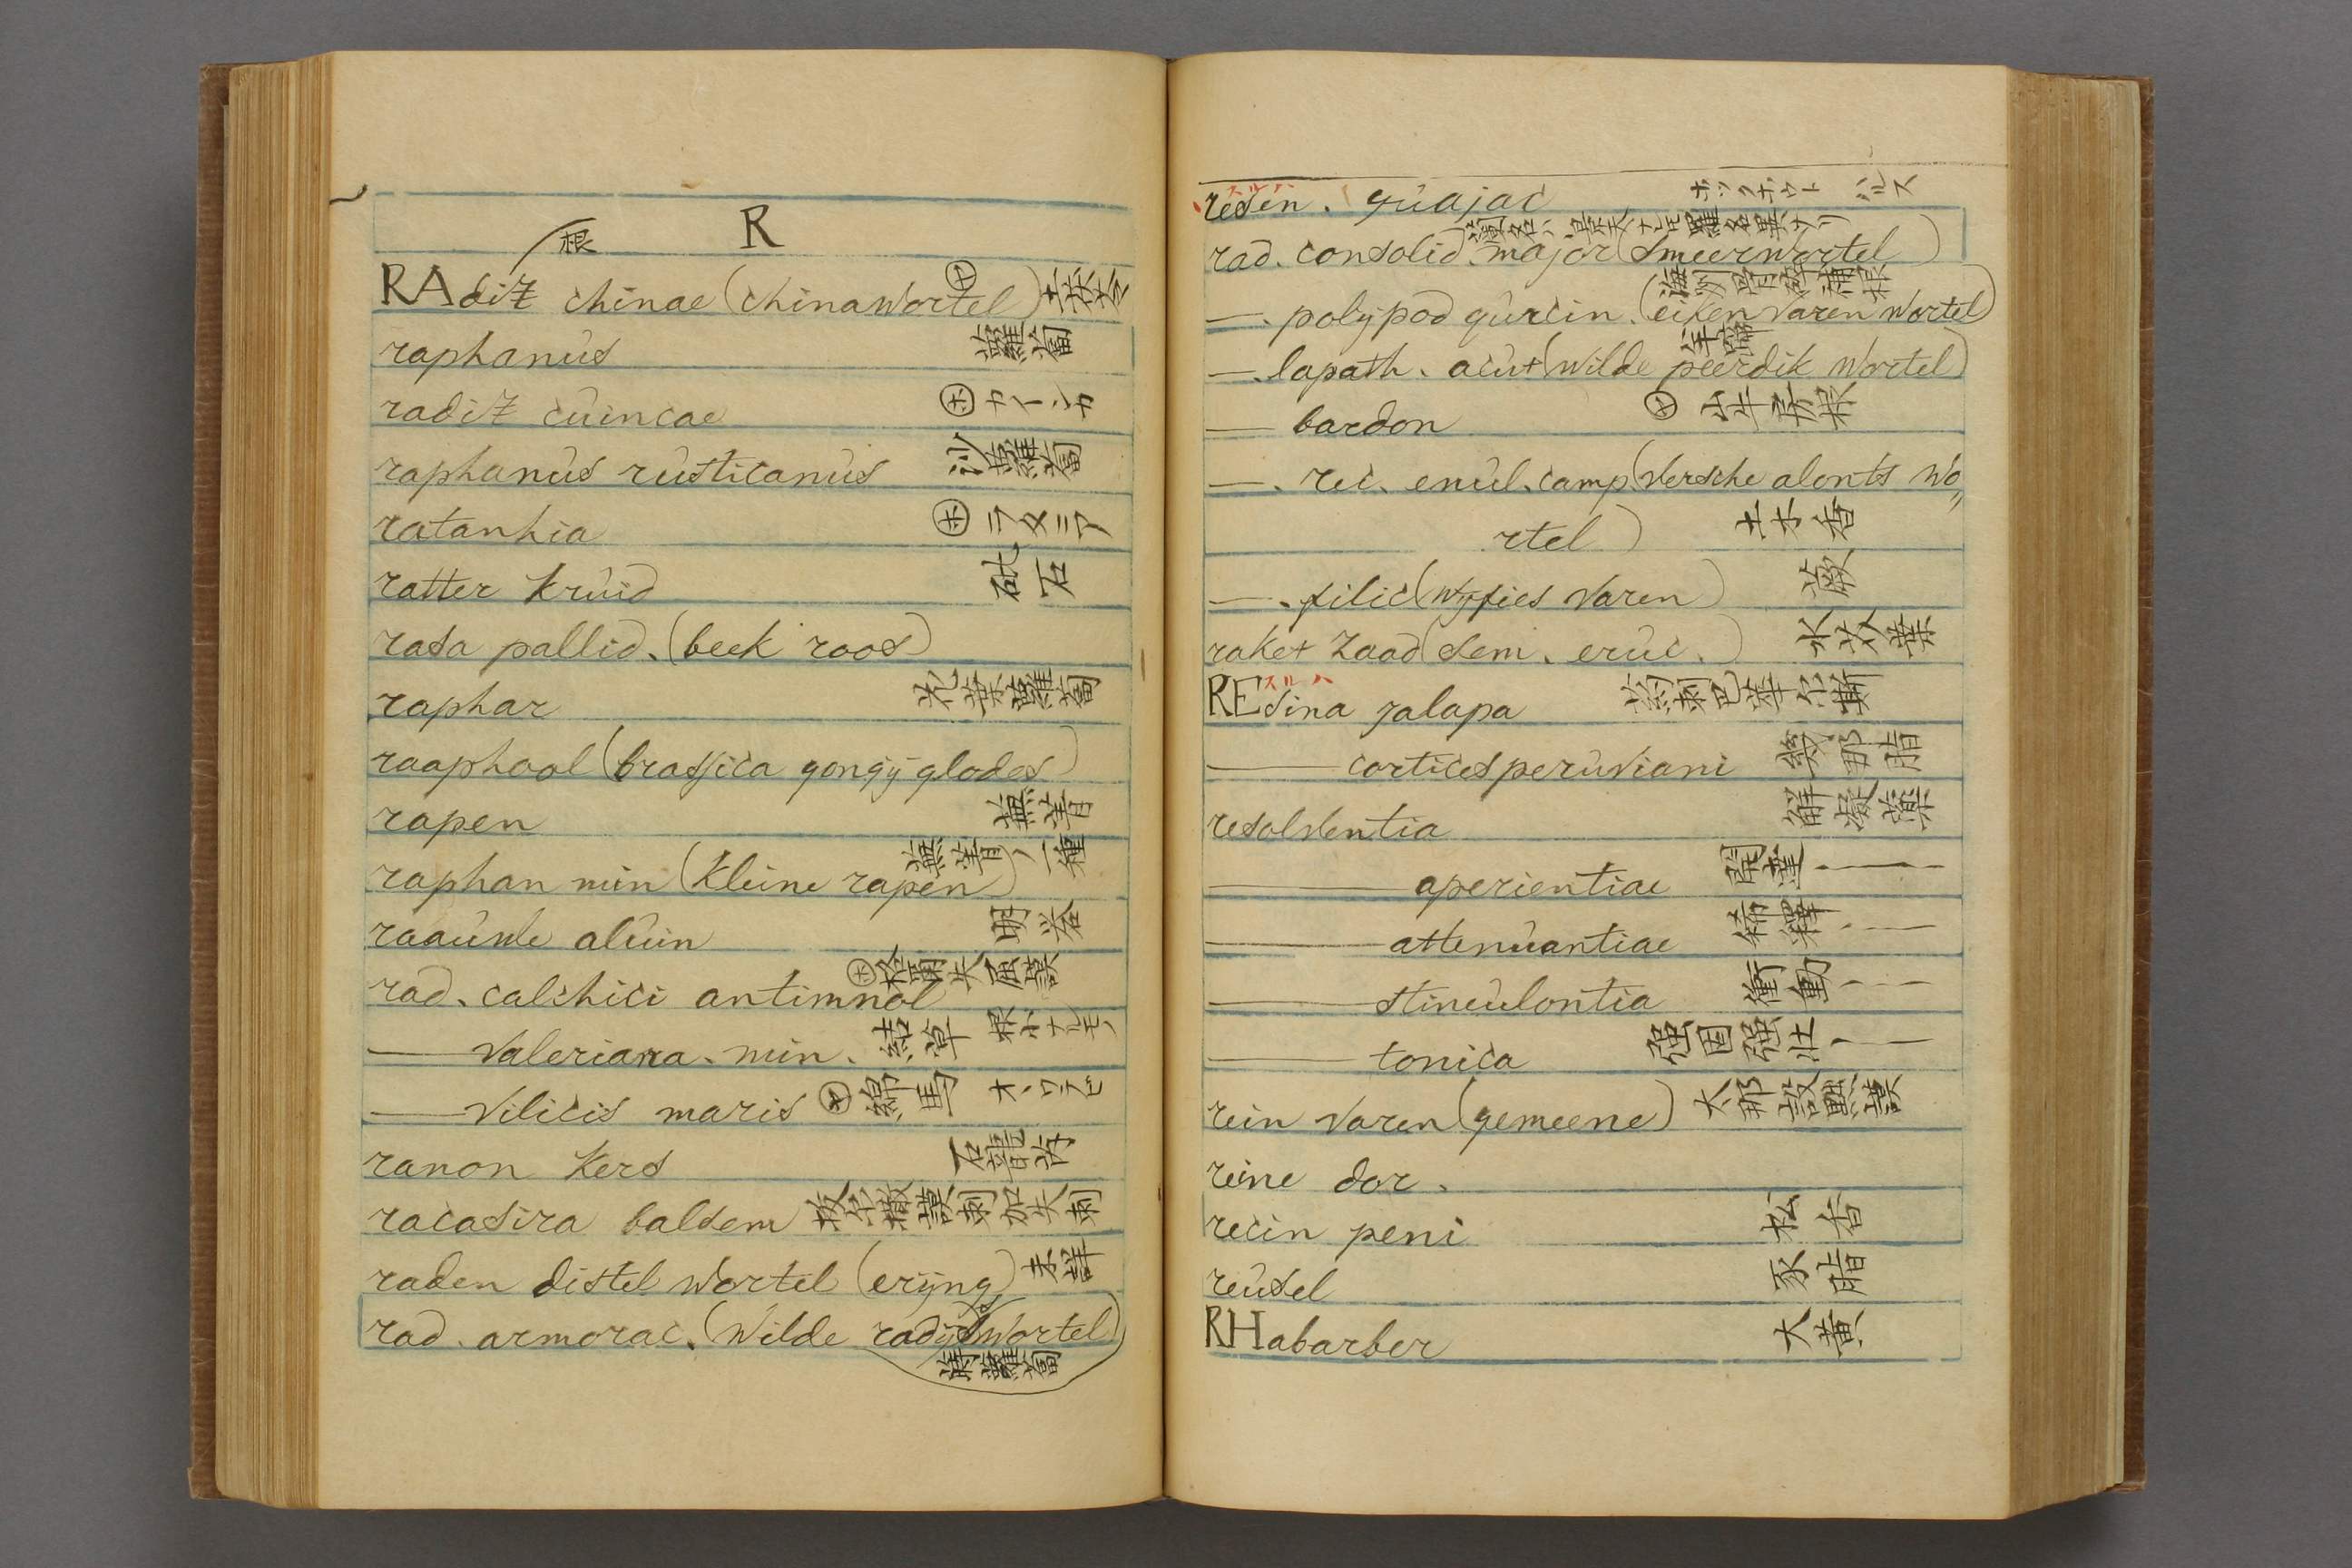 R
根
RAdix chinae (chinawortel) ㋳ 土茯苓
raphanus 蘿蔔
radix cuincae ㋭ カインカ
raphanus rusticanus 沙蘿蔔
ratanhia ㋭ ラタニア
ratter kruid 砒石
rasa pallid. (beek roos)
raphar 芜菜蘿蔔
raaphool (brassica gongy glodes)
rapen 蕪菁
raphan min (kleine rapen) 蕪菁ノ一種
raauwe aluin 明礬
rad. calchici antimnol ㋭
—— valeriana. min. 結草 根小ナルモノ
—— vilicis maris ㋳ 綿馬 オワラビ
ranon kers 石龍芮
racasira balsem
raden distel wortel (eryng)
rad. armorac. (wilde radys wortel)
蘿蔔
resen. guajac ホックホウト ハルス
スルハ
rad. consolid. major (smeerwortel)
—. polypod qurcin. (eiken varen wortel)
—. lapath. acut (wilde peerdik wortel) 羊蹄
—— bardon ㋳ 山牛蒡根
—. rec. enul. camp. (versche alants wo〃
rtel) 土木香
—. filic (wyfies varen) 蕨
raket zaad (sem. eruc.)
スルハ
REsina jalapa
—— cortices peruviani 幾那脂
resolventia 解凝藥
—— aperientiae 開達 ——
—— attenuantiae 稀釋 ——
—— stineulontia 衝動 ——
—— tonica 强固强壯 ——
rein varen (gemeene)
reine dor.
recin peni 松香
reusel 豕脂
RHabarber 大黄